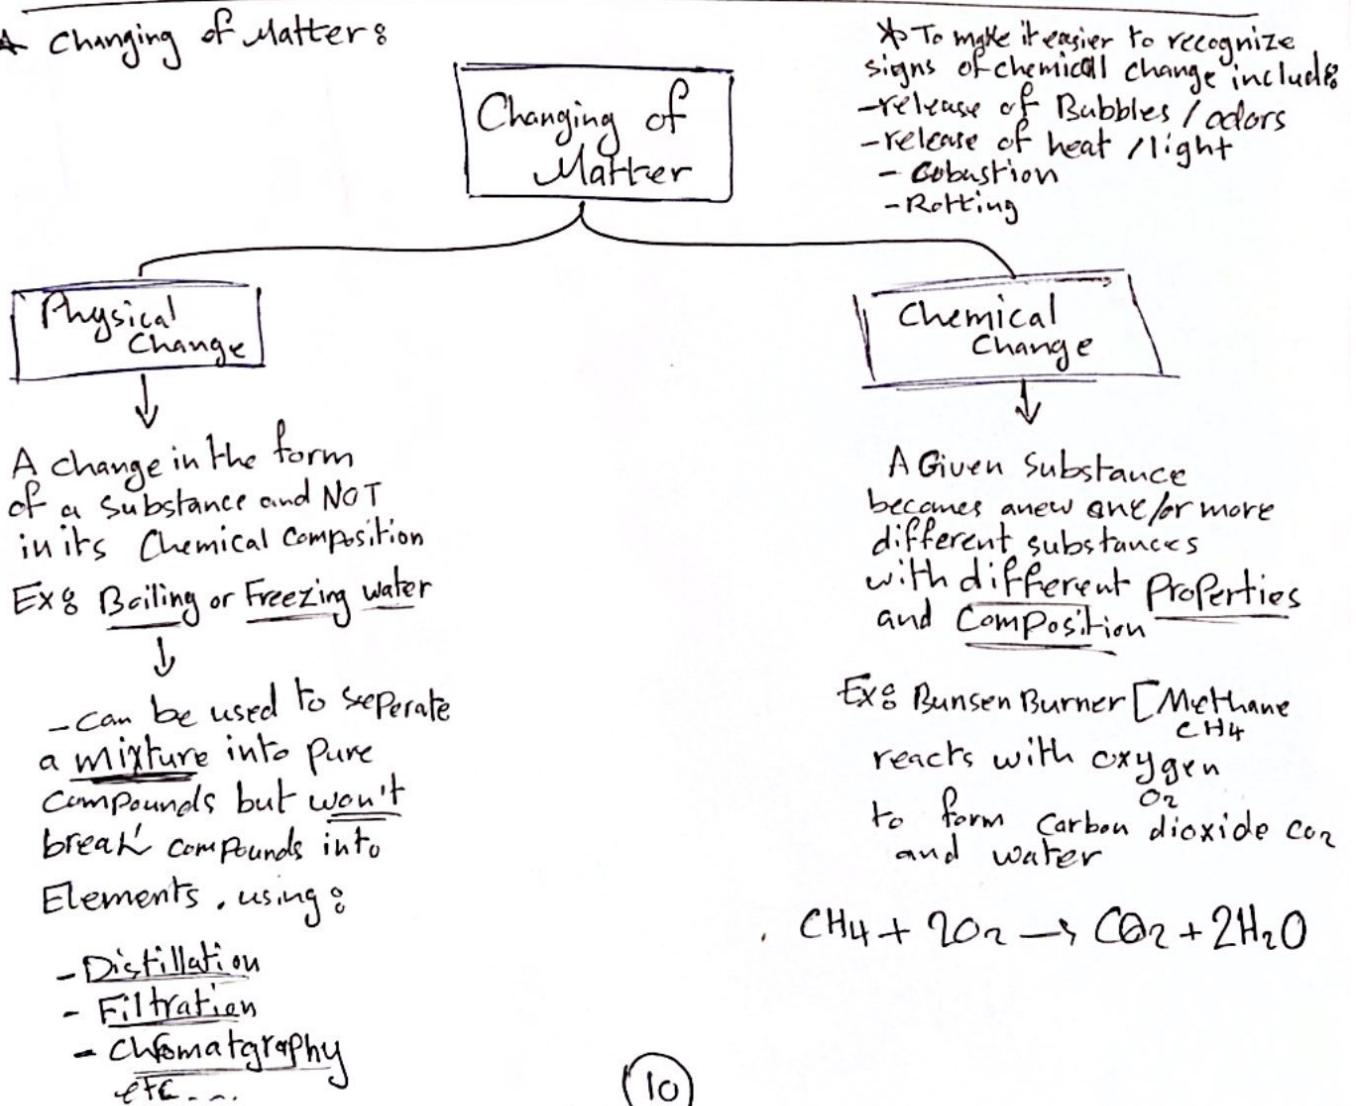 * Changing of Matter:
* To make it easier to recognize
signs of chemical change include:
- release of Bubbles / odors
- release of heat / light
- Cobustion
- Rotting
Changing of
Matter
Physical
Change
A change in the form
of a substance and NOT
in its Chemical Composition
Ex: Boiling or Freezing water
- can be used to seperate
a mixture into pure
Compounds but won't
break compounds into
Elements, using:
- Distillation
- Filtration
- Chromatgraphy
etc...
Chemical
Change
A Given Substance
becomes a new one/or more
different substances
with different Properties
and Composition
Ex: Bunsen Burner [Methane
CH4
reacts with oxygen
O2
to form Carbon dioxide CO2
and water
CH4 + 2O2 → CO2 + 2H2O
10